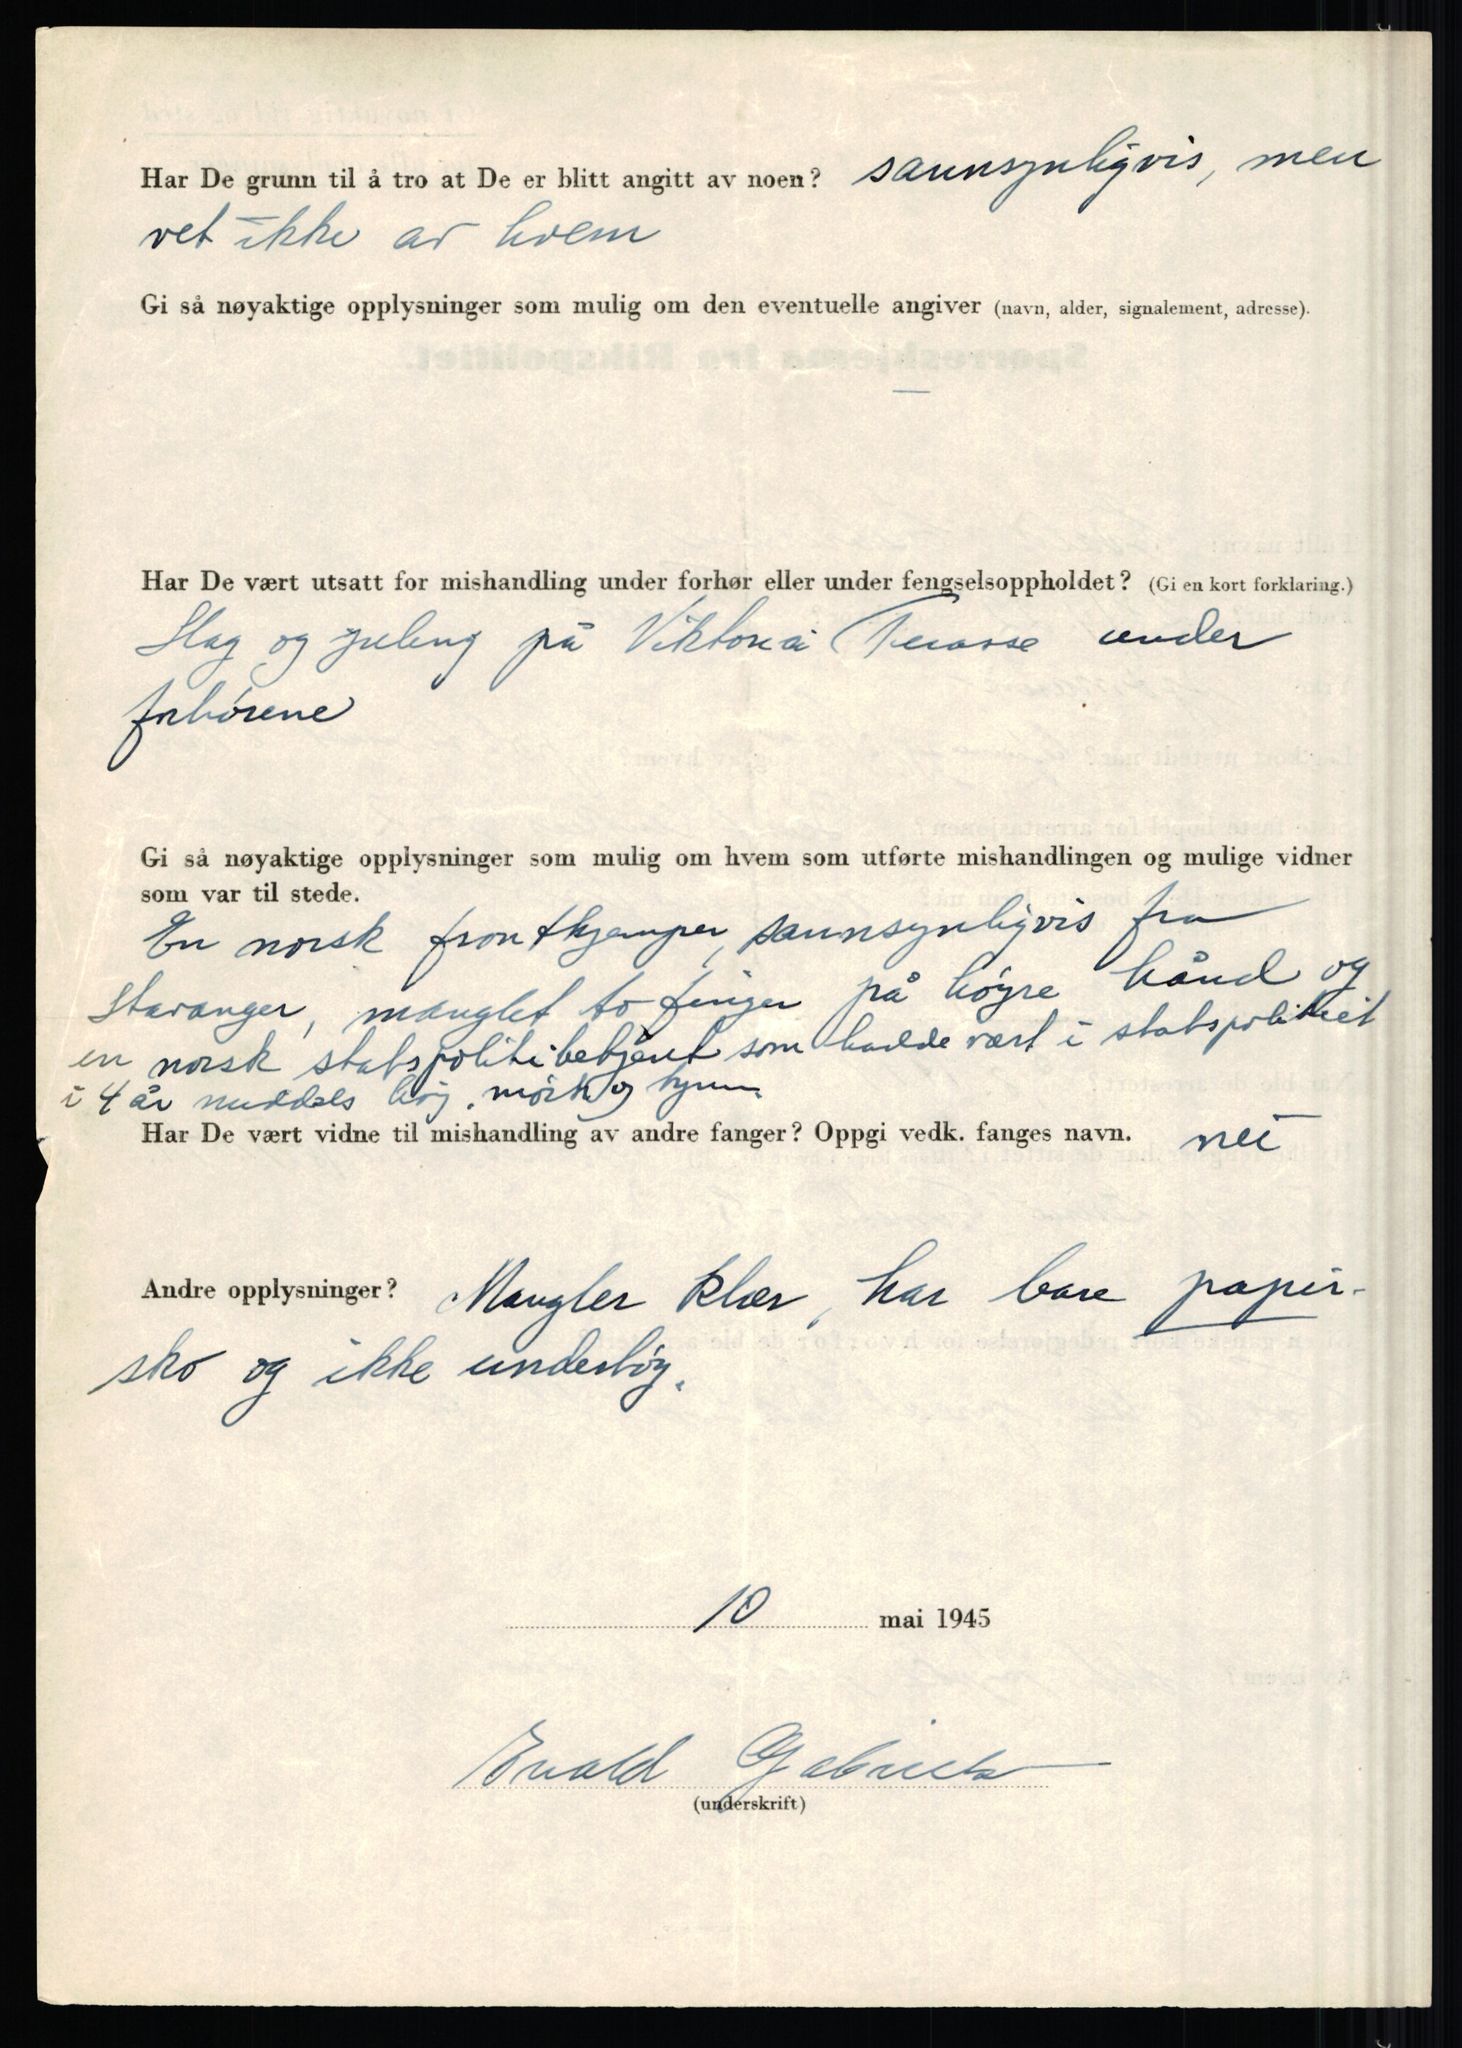 Har De grunn til å tro at De er blitt angitt av noen? sannsynligvis, men
vet ikke av hvem
Gi så nøyaktige opplysninger som mulig om den eventuelle angiver (navn, alder, signalement, adresse).
—
Har De vært utsatt for mishandling under forhør eller under fengselsoppholdet? (Gi en kort forklaring.)
Slag og juling på Viktoria Terasse under
forhørene
Gi så nøyaktige opplysninger som mulig om hvem som utførte mishandlingen og mulige vidner
som var til stede.
En norsk frontkjemper, sannsynligvis fra
Stavanger, manglet to finger på høyre hånd og
en norsk statspolitibetjent som hadde vært i statspolitiet
i 4 år middels høy, mørk og
Har De vært vidne til mishandling av andre fanger? Oppgi vedk. fanges navn. nei
Andre opplysninger? Mangler klær, har bare papir-
sko og ikke undertøy.
10 mai 1945
Evald
(underskrift)